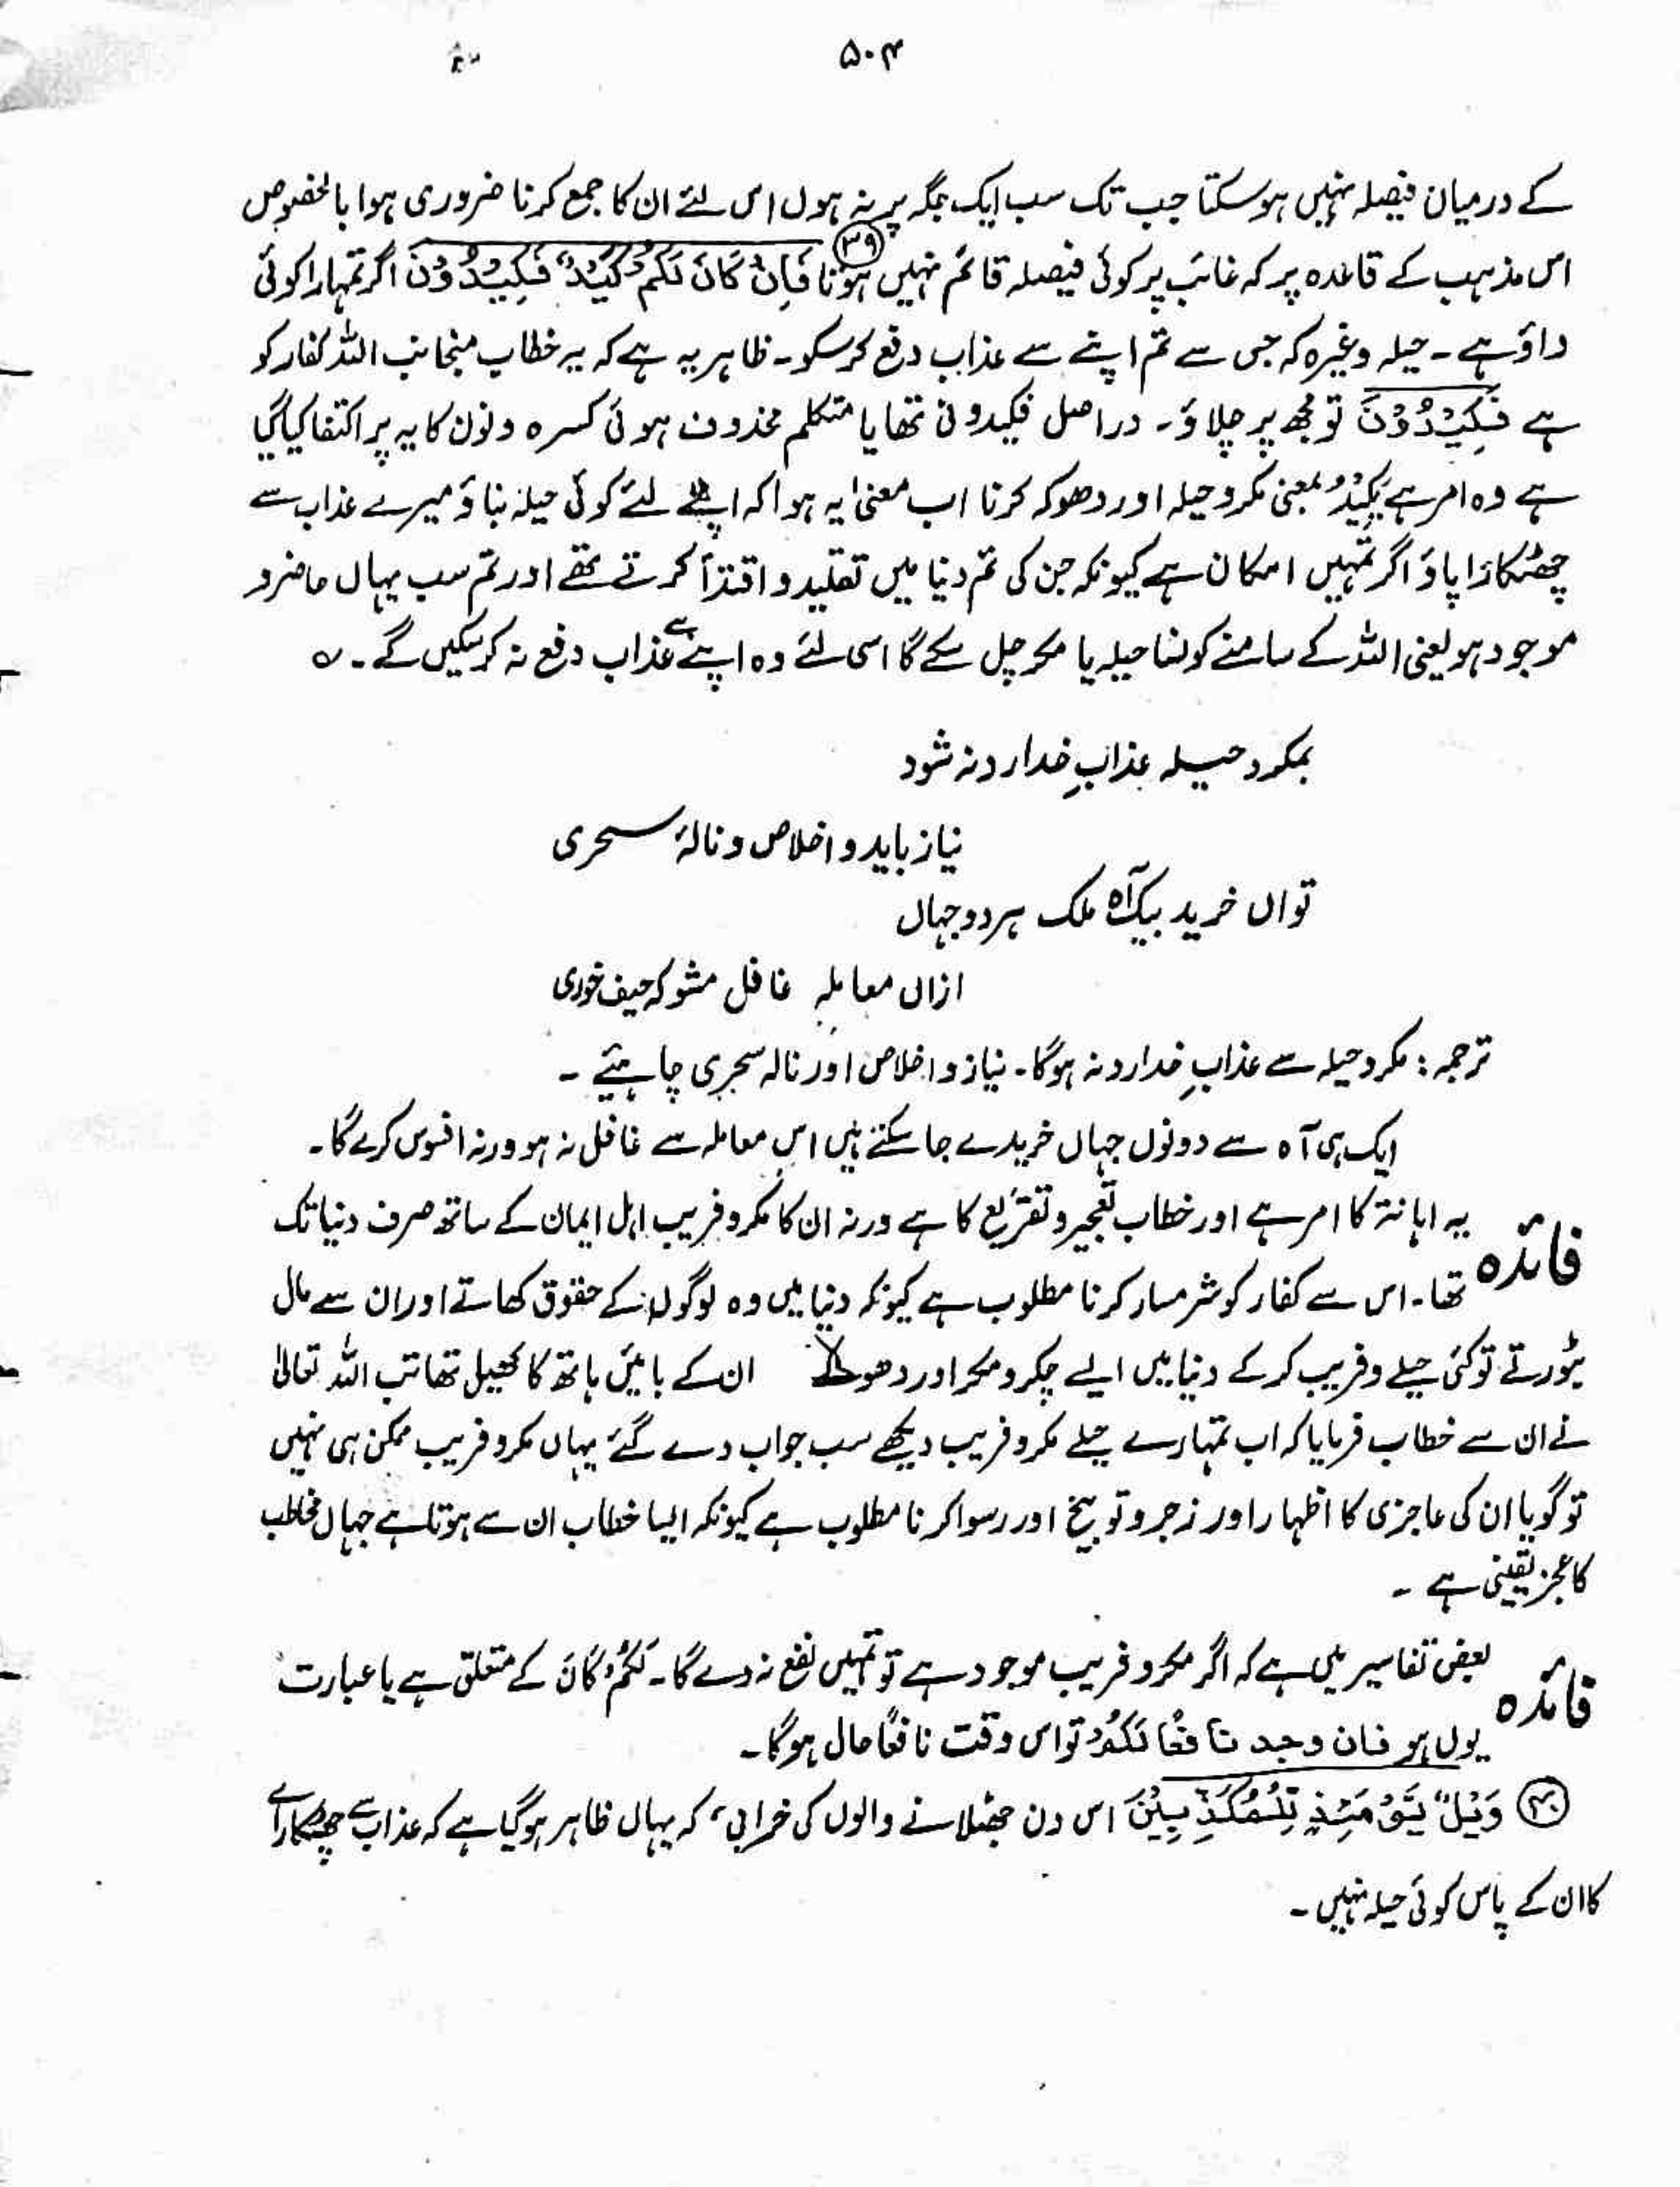 ۵۰۴
کے درمیان فیصلہ نہیں ہوسکتا جب تک سب ایک جگہ پر نہ ہوں اس لئے ان کا جمع کرنا ضروری ہوا بالخصوص
اس مذہب کے قاعدہ پر کہ غائب پر کوئی فیصلہ قائم نہیں ہوتا ۳۹ فَاِنْ كَانَ لَكُمْ كَيْدٌ فَكِيْدُوْنَ اگر تمہارا کوئی
داؤ ہے ۔ حیلہ وغیرہ کہ جس سے تم اپنے سے عذاب دفع کرسکو ۔ ظاہر یہ ہے کہ یہ خطاب منجانب اللہ کفار کو
ہے فَكِيْدُوْنَ تو مجھ پر چلاؤ ۔ دراصل فکیدونی تھا یا متکلم محذوف ہوئی کسرہ و نون کا یہ پر اکتفا کیا گیا
ہے وہ امر ہے یَکِیْدُ بمعنی مکر و حیلہ اور دھوکہ کرنا اب معنیٰ یہ ہوا کہ اپنے لئے کوئی حیلہ بناؤ میرے عذاب سے
چھٹکارا پاؤ اگر تمہیں امکان ہے کیونکہ جن کی تم دنیا میں تقلید و اقتدأ کرتے تھے اور تم سب یہاں حاضر و
موجود ہو یعنی اللہ کے سامنے کونسا حیلہ یا مکر چل سکے گا اسی لئے وہ اپنے سے عذاب دفع نہ کرسکیں گے ۔ ؎
بمکر و حیلہ عذابِ خدا رد نہ شود
نیاز باید و اخلاص و نالۂ سحری
تواں خرید بیک آہ ملک ہر دو جہاں
ازاں معاملہ غافل مشو کہ حیف خوری
ترجمہ : مکر و حیلہ سے عذابِ خدا رد نہ ہوگا ۔ نیاز و اخلاص اور نالہ سحری چاہئیے ۔
ایک ہی آہ سے دونوں جہاں خریدے جا سکتے ہیں اس معاملہ سے غافل نہ ہو ورنہ افسوس کرے گا ۔
فائدہ یہ اہانۃ کا امر ہے اور خطاب تعجیز و تقریع کا ہے ورنہ ان کا مکر و فریب اہل ایمان کے ساتھ صرف دنیا تک
تھا ۔ اس سے کفار کو شرمسار کرنا مطلوب ہے کیونکہ دنیا میں وہ لوگوں کے حقوق کھاتے اور ان سے مال
بٹورتے تو کئی حیلے و فریب کرکے دنیا میں ایسے چکر و مکر اور ان کے بائیں ہاتھ کا کھیل تھا تب اللہ تعالیٰ
نے ان سے خطاب فرمایا کہ اب تمہارے حیلے مکر و فریب دیکھے سب جواب دے گئے یہاں مکر و فریب ممکن ہی نہیں
تو گویا ان کی عاجزی کا اظہار اور زجر و توبیخ اور رسوا کرنا مطلوب ہے کیونکہ ایسا خطاب ان سے ہوتا ہے جہاں مخاطب
کا عجز یقینی ہے ۔
فائدہ بعض تفاسیر میں ہے کہ اگر مکر و فریب موجود ہے تو تمہیں نفع نہ دے گا ۔ لَكُمْ کَانَ کے متعلق ہے یا عبارت
یوں ہو فان وجد نافعًا لَكُمْ تو اس وقت نافعًا حال ہوگا ۔
۴۰ وَيْلٌ يَّوْمَئِذٍ لِّلْمُكَذِّبِيْنَ اس دن جھٹلانے والوں کی خرابی ، کہ یہاں ظاہر ہوگیا ہے کہ عذاب سے چھٹکارا
کا ان کے پاس کوئی حیلہ نہیں ۔